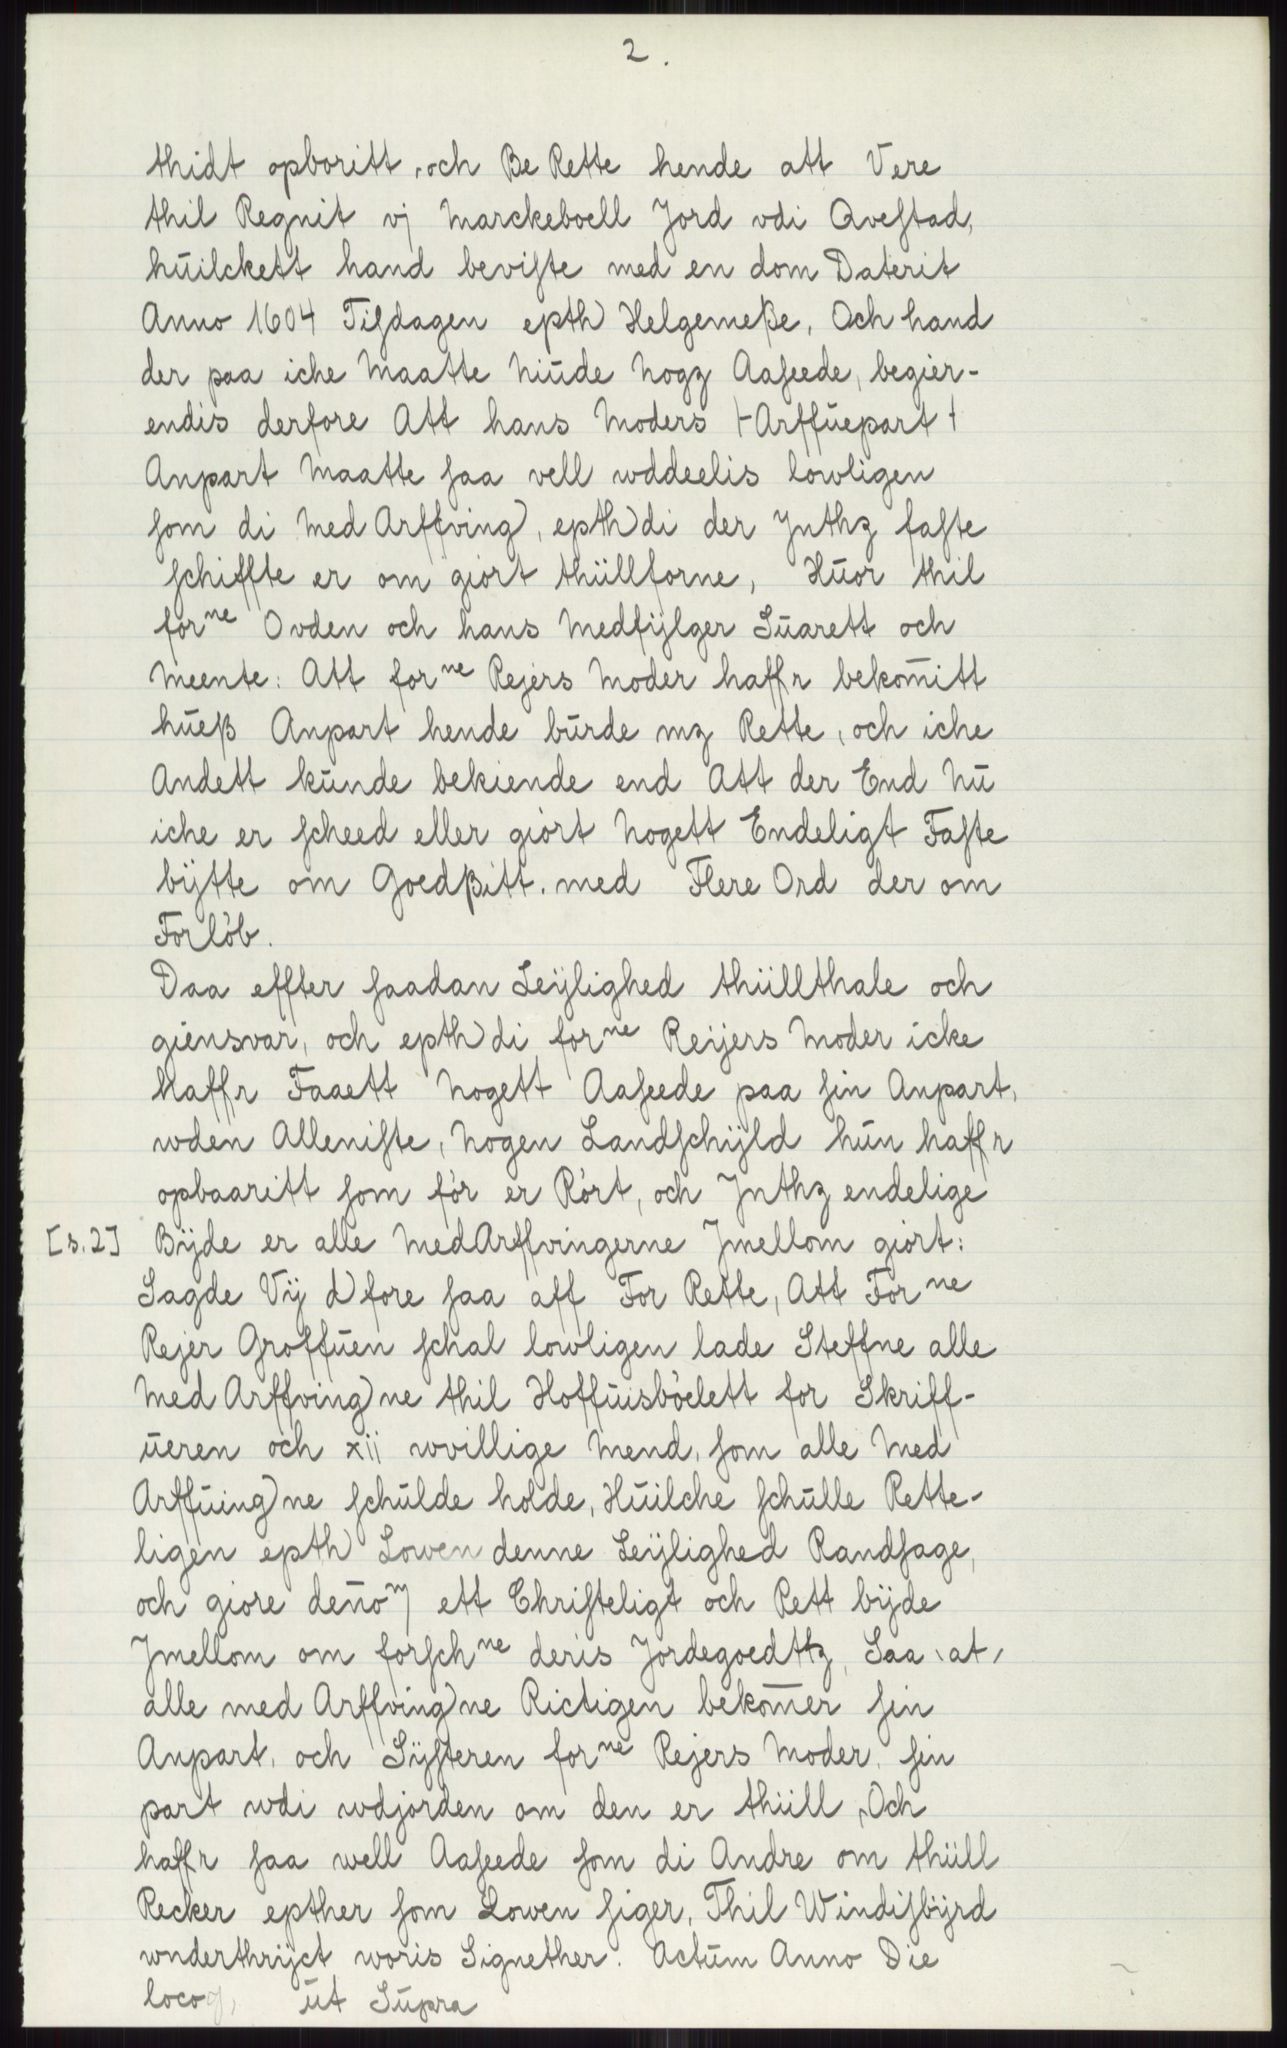 2.
thidt opboritt, och Be Rette hende att Vere
thil Regnit vj Marckeboell Jord vdi Qveſtad,
huilckett hand beviſte med en dom Daterit
Anno 1604 Tiſdagen epth) Helgemeße, Och hand
der paa iche Maatte Niude Nogz Aaſeede, begier-
endis derfore Att hans Moders |-Arffuepart-|
Anpart Maatte ſaa vell wddeelis lowligen
ſom di Med Arffving), epth)di der Jnthz faſte
ſchiffte er om giort thüllforne, Huor thil
forⁿᵉ Ovden och hans Medfÿlger Suarett och
Meente: Att forⁿᵉ Rejers Moder haffr bekom̄itt
hueß Anpart hende burde mz Rette, och iche
Andett kunde bekiende end Att der End Nu
iche er ſcheed eller giört Nogett Endeligt Faſte
bÿtte om Goedßitt. med Flere Ord der om
Forlöb.
Daa effter ſaadan Leÿlighed thüllthale och
giensvar, och epth)di forⁿᵉ Reijers Moder icke
Haffr Faaett Nogett Aaſeede paa ſin Anpart,
wden Alleniſte, Nogen Landſchÿld hun haffr
opbaaritt ſom för er Rört, och Jnthz endelige
[s.2] Bÿde er alle MedArffvingerne Jmellom giort:
Sagde Vÿ d)fore ſaa aff For Rette, Att Forⁿᵉ
Rejer Groffuen ſchal lowligen lade Steffne alle
Med Arffving)ne thil Hoffuisböelett for Skriff-
ueren och xii wvillige Mend, ſom alle Med
Arffuing)ne ſchulde holde, Huilche ſchulle Rette-
ligen epth) Lowen denne Leÿlighed Randſage,
och giore den̄om ett Chriſteligt och Rett bÿde
Jmellom om forſchⁿᵉ deris Jordegoedttz, Saa at
alle med Arffving)ne Rictigen bekom̄er ſin
Anpart, och Sÿſteren forⁿᵉ Rejers Moder, ſin
part wdi wdjorden om den er thüll, Och
haffr ſaa well Aaſeede ſom di Andre om thüll
Recker epther ſom Lowen ſiger, Thil Windiſbÿrd
wnderthrÿct woris Signether. Actum Anno Die
locoq, ut Supra